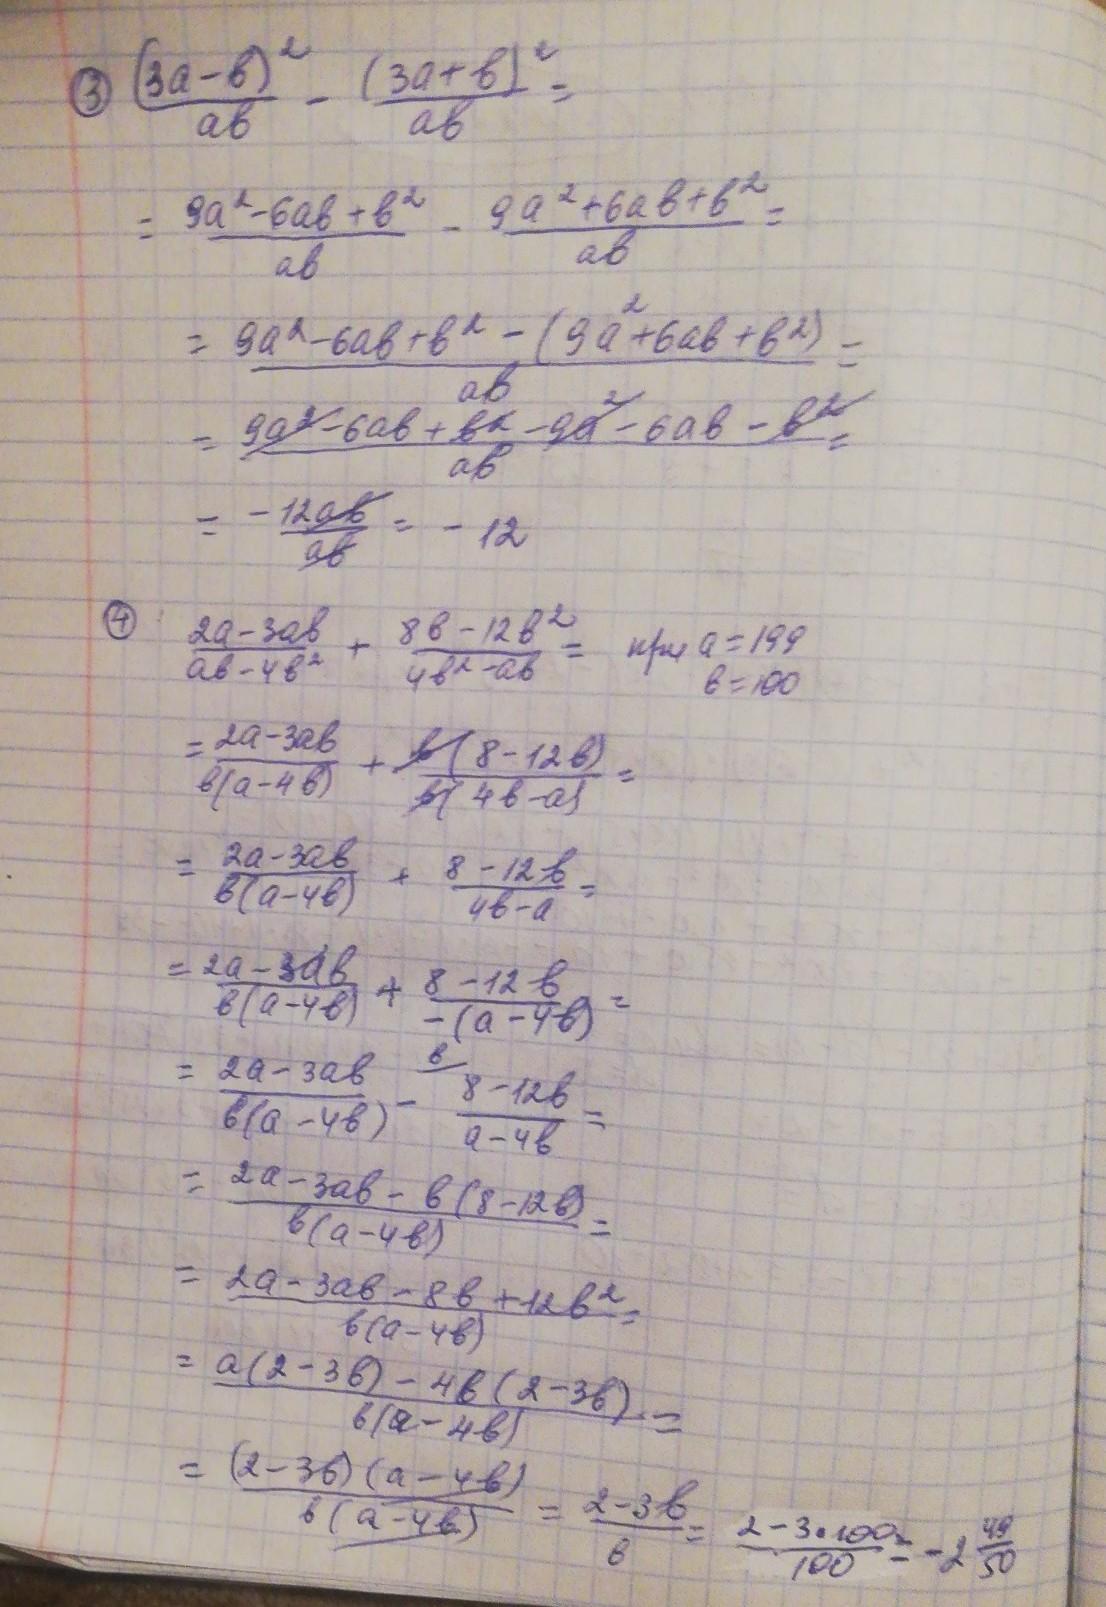 ③ (3a-в)²/aв - (3a+в)²/aв =
= 9a²-6aв+в²/aв - 9a²+6aв+в²/aв =
= 9a²-6aв+в²-(9a²+6aв+в²)/aв =
= 9a²-6aв+в²-9a²-6aв-в²/aв =
= -12aв/aв = -12
④ 2a-3aв/aв-4в² + 8в-12в²/4в²-aв = при a=199
в=100
= 2a-3aв/в(a-4в) + в(8-12в)/в(4в-a) =
= 2a-3aв/в(a-4в) + 8-12в/4в-a =
= 2a-3aв/в(a-4в) + 8-12в/-(a-4в) =
= 2a-3aв/в(a-4в) - в/ 8-12в/a-4в =
= 2a-3aв-в(8-12в)/в(a-4в) =
= 2a-3aв-8в+12в²/в(a-4в) =
= a(2-3в)-4в(2-3в)/в(a-4в) =
= (2-3в)(a-4в)/в(a-4в) = 2-3в/в = 2-3•100/100 = -2 49/50